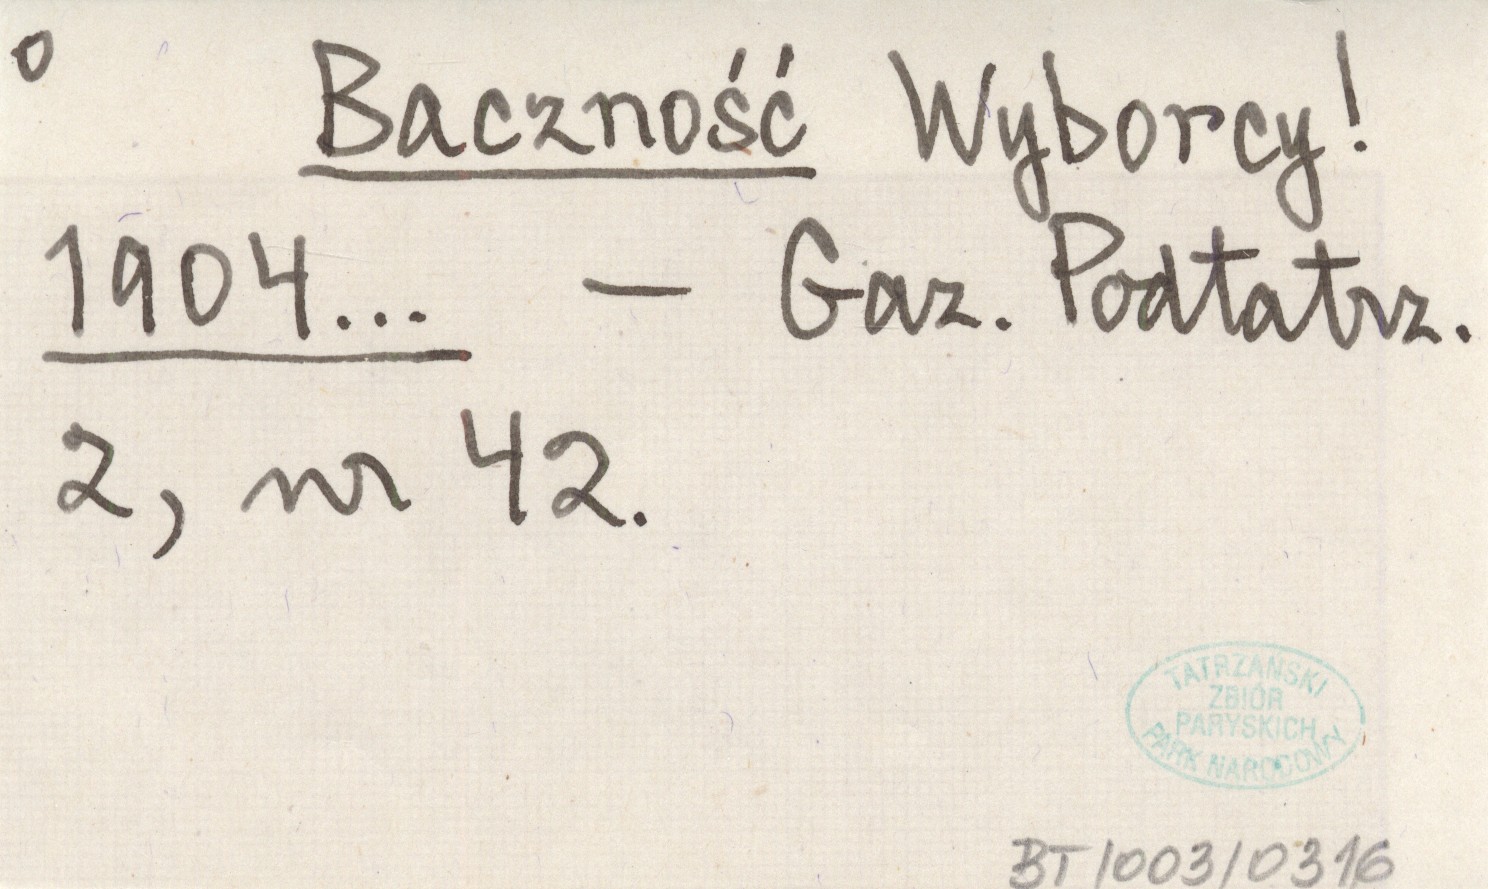 o
Baczność Wyborcy!
1904... — Gaz. Podtatrz.
2, nr 42.
TATRZAŃSKI
ZBIÓR
PARYSKICH
PARK NARODOWY
BT/003/0316